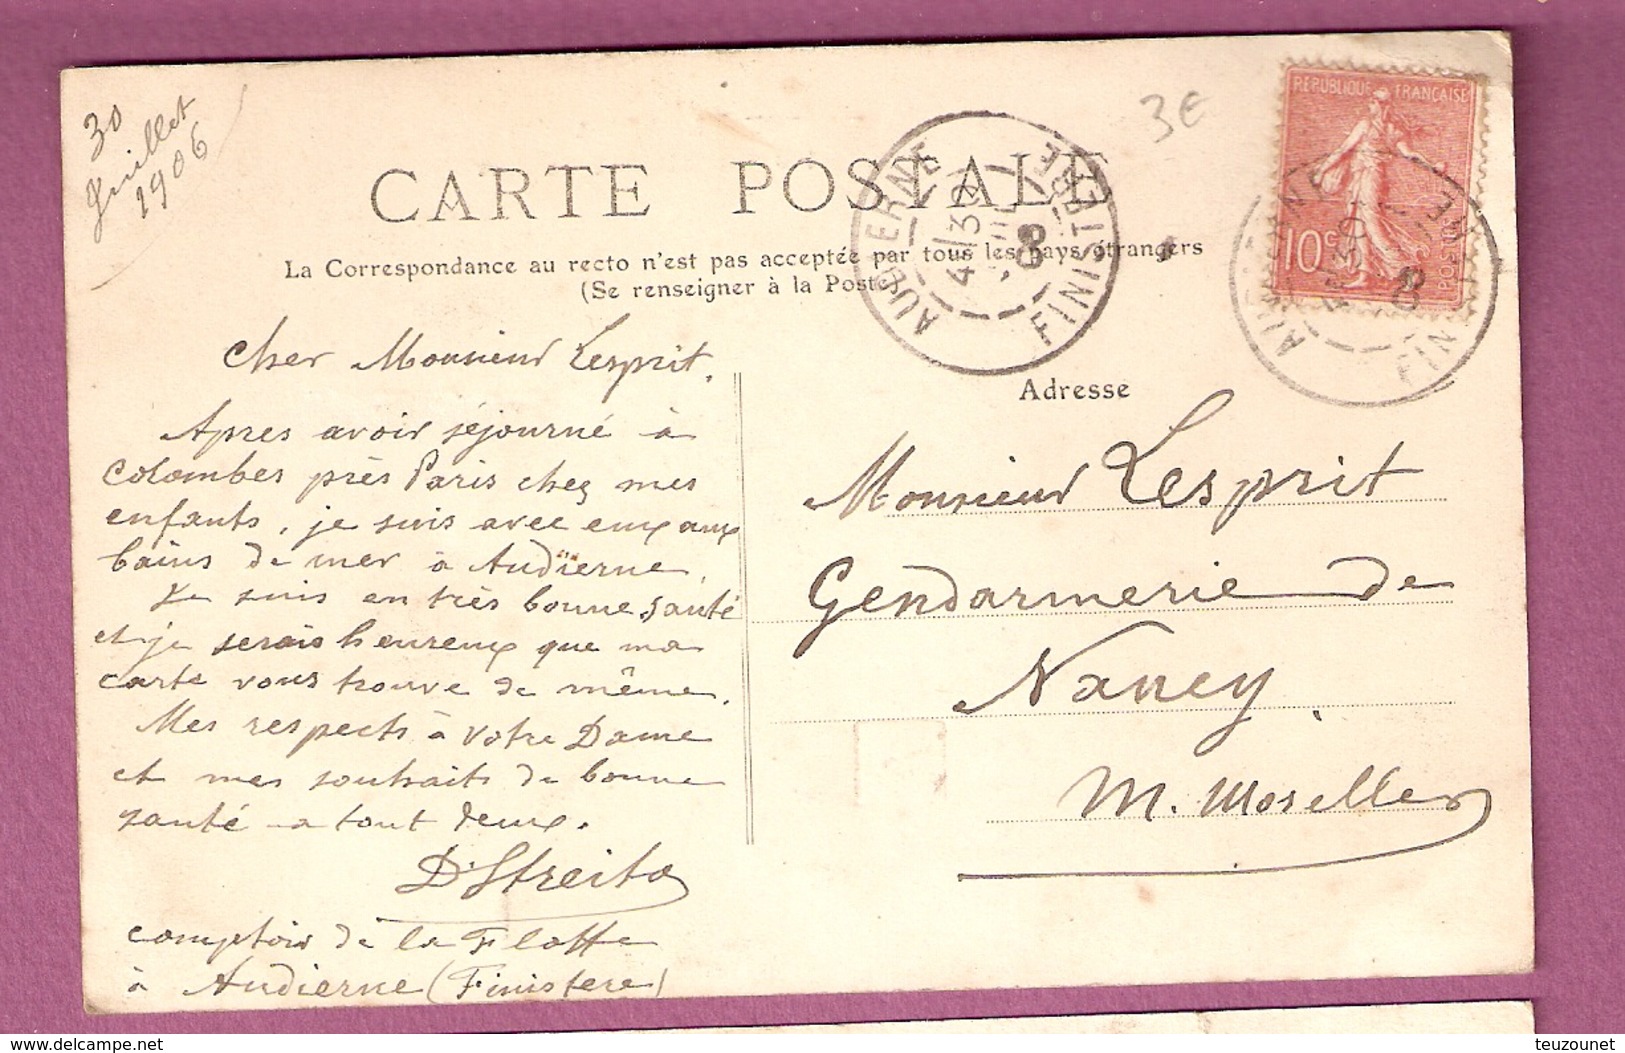 30
Juillet
1906
3€
CARTE POSTALE
La Correspondance au recto n'est pas acceptée par tous les pays étrangers
(Se renseigner à la Poste)
REPUBLIQUE FRANÇAISE
10c
POSTES
AUDIERNE
4 30
FINISTERE
AUDIERNE
30
FINISTERE
Cher Monsieur Lesprit.
Apres avoir séjourné à
Colombes près Paris chez mes
enfants, je suis avec eux aux
bains de mer à Audierne.
Je suis en très bonne santé
et je serais heureux que ma
carte vous trouve de même.
Mes respects à votre Dame
et mes souhaits de bonne
santé a tout deux.
comptoir de la Flotte
à Audierne (Finistere)
Adresse
Monsieur Lesprit
Gendarmerie de
Nancy.
M. Moselle
delcampe.net
teuzounet